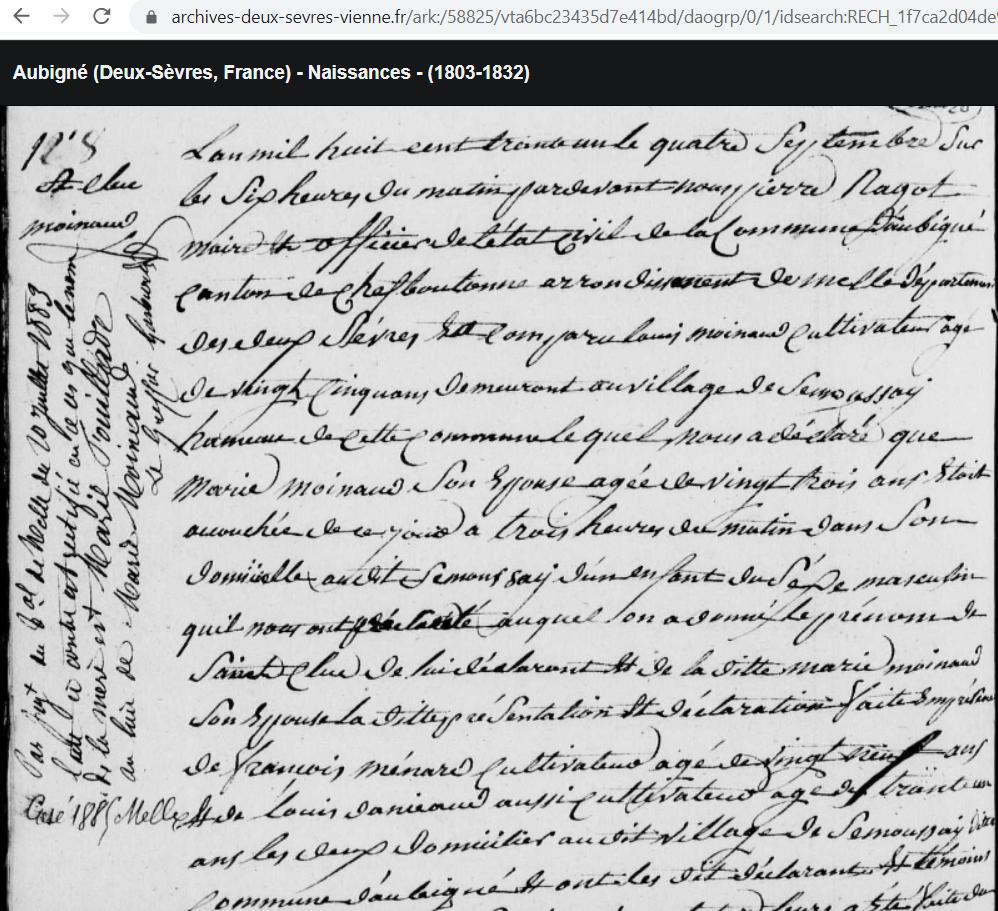 archives-deux-sevres-vienne.fr/ark:/58825/vta6bc23435d7e414bd/daogrp/0/1/idsearch:RECH_1f7ca2d04de
Aubigné (Deux-Sèvres, France) - Naissances - (1803-1832)
Lan mil huit cent trente un le quatre Septembre Sur
les Six heures du matin pardevant nous pierre Nagot
maire et officier de létat Civil de la Commune daubigné
Canton de Chefboutonne arrondissement de melle département
des deux Sévres Est Comparu louis moinaud Cultivateur agé
de vingt Cinq ans demeurant au village de Semoussay
hameau de cette Commune lequel nous a déclaré que
Marie moinaud Son Epouse agée de vingt trois ans Etoit
acouchée de ce jour a trois heures du matin dans Son
domicille au dit Semoussay d'un enfant du Séxe masculin
quil nous ont auquel lon a donné le prénom de
Saint Clue de lui déclarant Et de la ditte marie moinaud
Son Epouse la ditte présentation Et déclaration faite En présence
de francois ménard Cultivateur agé de vingt neuf ans
Et de louis danieaud aussi Cultivateur agé de trante un
ans les deux domicilier au dit village de Semoussay ditte
Commune daubigné Et ont les dit déclarant Et témoins
128
St Clue
moinaud
Par jugt du Bal de Melle du 20 Juillet 1883
l'acte ci contre est rectifié en ce que le nom
de la mère est Marie Pouillade
au lieu de Marie Moinaud
Le Greffier
Casé 1885 Melle